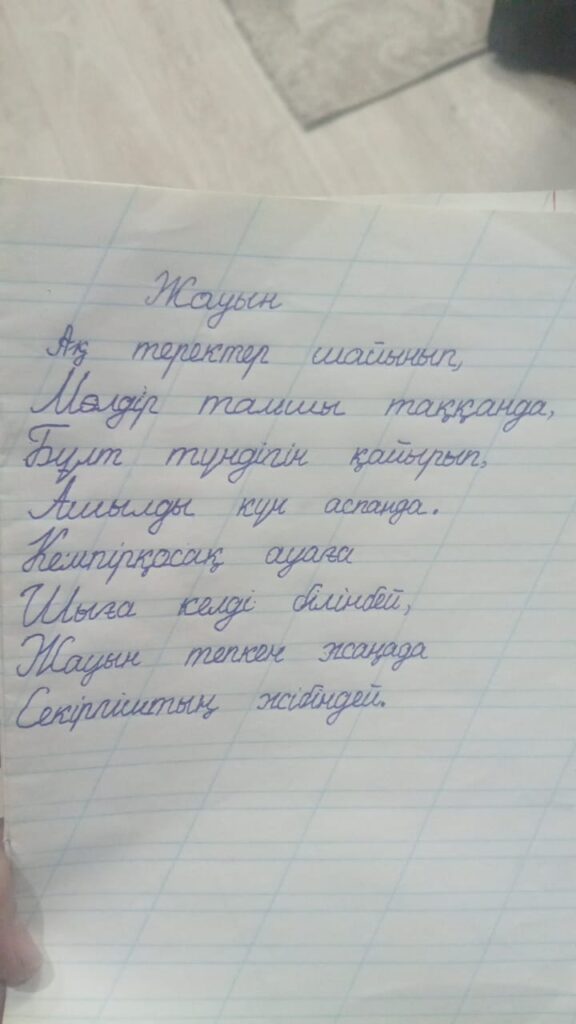 Жауын
Ақ теректер шайынып,
Мөлдір тамшы таққанда,
Бұлт түндігін қайырып,
Ашылды күн аспанда.
Кемпірқосақ ауаға
Шыға келді білінбей,
Жауын тепкен жаңада
Секірпіштың жібіндей.